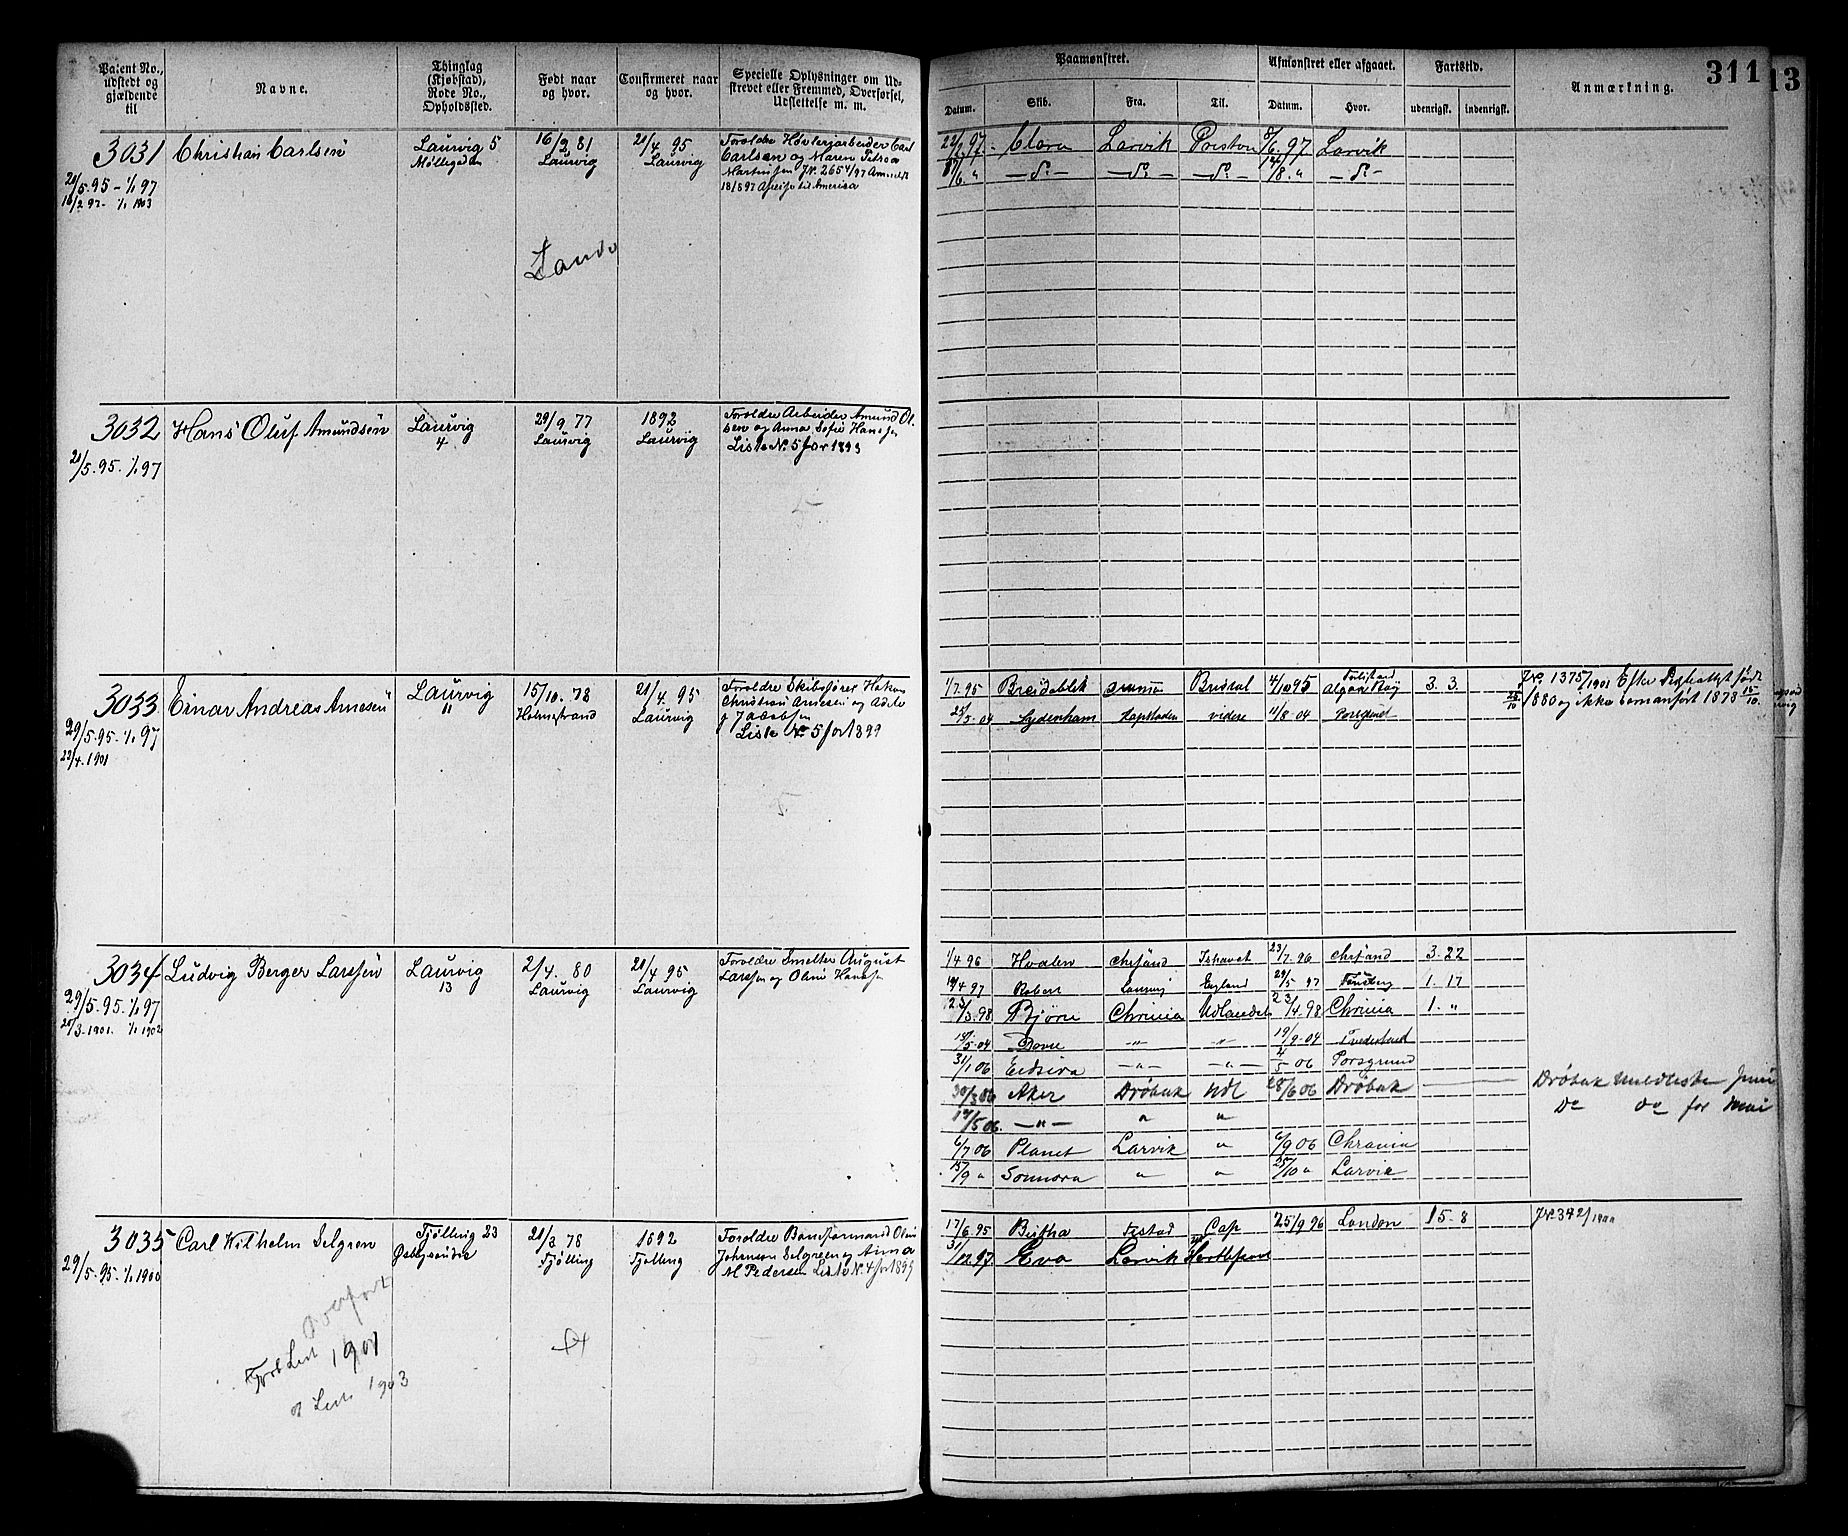 Patent No., udstedt og gjældende til
Navne.
Thinglag (Kjøbstad), Rode No., Opholdssted.
Født naar og hvor.
Confirmeret naar og hvor.
Specielle Oplysninger om Udskrevet eller Fremmed, Overførsel, Udslettelse m. m.
Paamønstret.
Afmønstret eller afgaaet.
Fartstid.
Anmærkning.
311
13
Datum.
Skib.
Fra.
Til.
Datum.
Hvor.
udenrigsk.
indenrigsk.
3031
Christian Carlsen
Laurvig 5
16/2 81
21/4 95
Forældre Høvleriarbeider Carl
Laurvig
Laurvig
Carlsen og Maren Petrea
21/5.95 - 1/1 97
Martinsen J.№ 2654/97
1/1 1903
18/5 97 til Amerika
22/2 97. Clara Larvik Preston 8/6.97 Larvik
8/6 " - do - - do - - do - 14/8. " - do -
3032
Hans Oluf Amundsen
Laurvig
29/9 77
1892
Forældre Arbeider Amund Ol-
4
Laurvig
Laurvig
sen og Anna Sofie Hansen
21/5.95. 1/1 97
Liste № 5 for 1899
5
3033
Einar Andreas Arnesen
Laurvig
15/10. 78
21/4. 95
Forældre Skibsfører Hakon
11
Holmestrand
Laurvig
Christian Arnesen og Adele
Jacobsen
29/5.95. 1/1 97
Liste № 5 for 1899
22/4. 1901
5
1/7.95 Breidablik Bristol 4/10 95 3. 3.
J№ 1375/1901 Efter født
25/5.04 Sydenham Kapstaden videre 11/8 04
25/10 1880 og ikke som anført 1878 15/10.
3034
Ludvig Berger Larssen
Laurvig
2/4. 80
21/4 95
Forældre Smelter August
13
Laurvig
Laurvig
Larssen og Hanssen
29/5.95. 1/1 97
21/3.1901. 1/1 1902
1/4 96 Hvalen Chrsand Ishavet 23/7.96 Chrsand 3. 22
Robert England 1. 17
23/3.98 Bjørn Chrinia Udlandet 23/4.98 Chrinia 1. "
" " 19/9.04
31/1 06 Eidsiva - " - - " - 4/5 06 Porsgrund
30/3 06 Aker Drøbak Udl 28/6 06 Drøbak
Drøbak
14/5 06. - " - " "
Do do for Mai
6/7 06 Planet Larvik " 6/9 06 Chrania
15/9 " Sonnora " " 25/10 " Larvik
3035
Carl Wilhelm Selgren
Tjølling 23
21/3 78
1892
Forældre Baneformand
Tjølling
Tjølling
Johnson Selgren og Anna
29/5.95. 1/1 1900
M Pedersen Liste № 4 for 1899
17/6.95 Cap 25/9 96 London 15. 8
J№ 342/1900
31/12.97. Eva Larvik Hartlepool
Overført
1901
1903